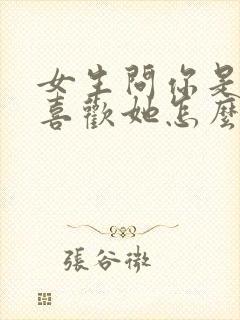 女生問你是
喜歡她怎麼
張谷微